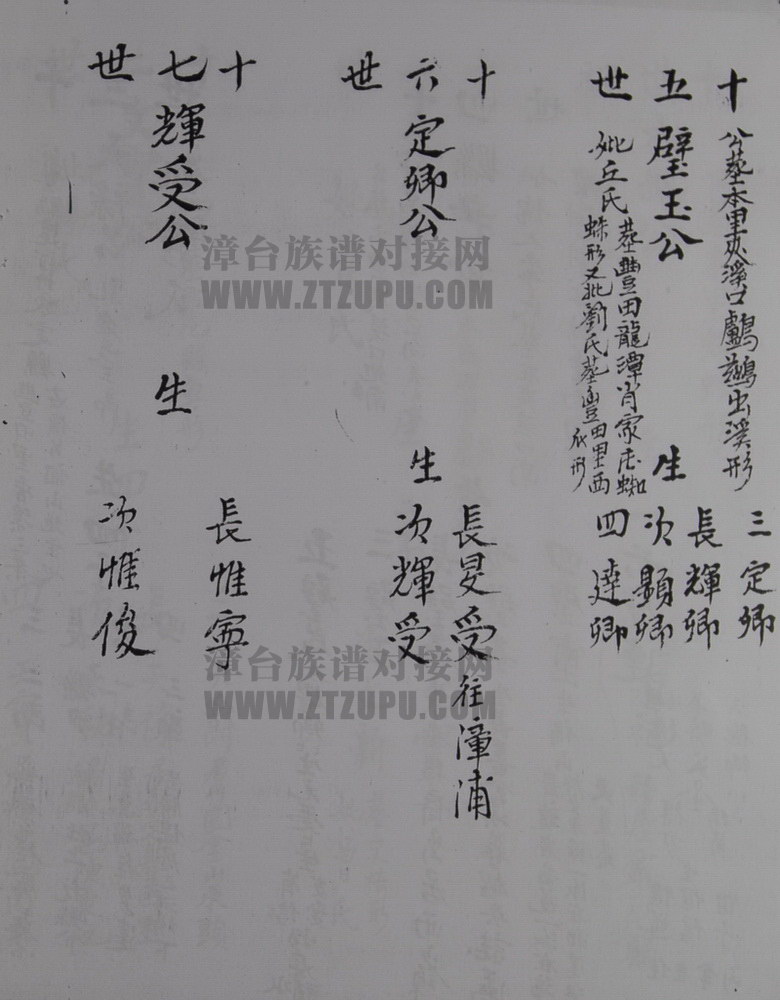 十五世
公葬本里夾溪口鸕鶿出溪形
璧玉公
妣丘氏
葬豐田龍潭肖家庄蜘
蛛形又妣劉氏葬豐田里西
形
生
三定卿
長輝卿
次顯卿
四達卿
十六世
定卿公
生
長旻受往漳浦
次輝受
十七世
輝受公
生
長惟寧
次惟俊
漳台族谱对接网
WWW.ZTZUPU.COM
漳台族谱对接网
WWW.ZTZUPU.COM